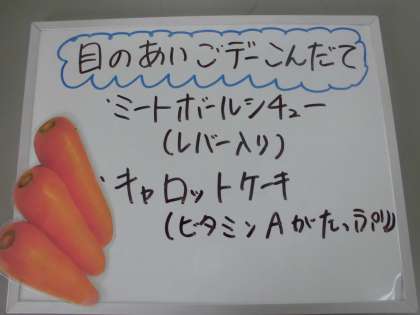 目のあいごデーこんだて
・ミートボールシチュー
(レバー入り)
・キャロットケーキ
(ビタミンAがたっぷり)